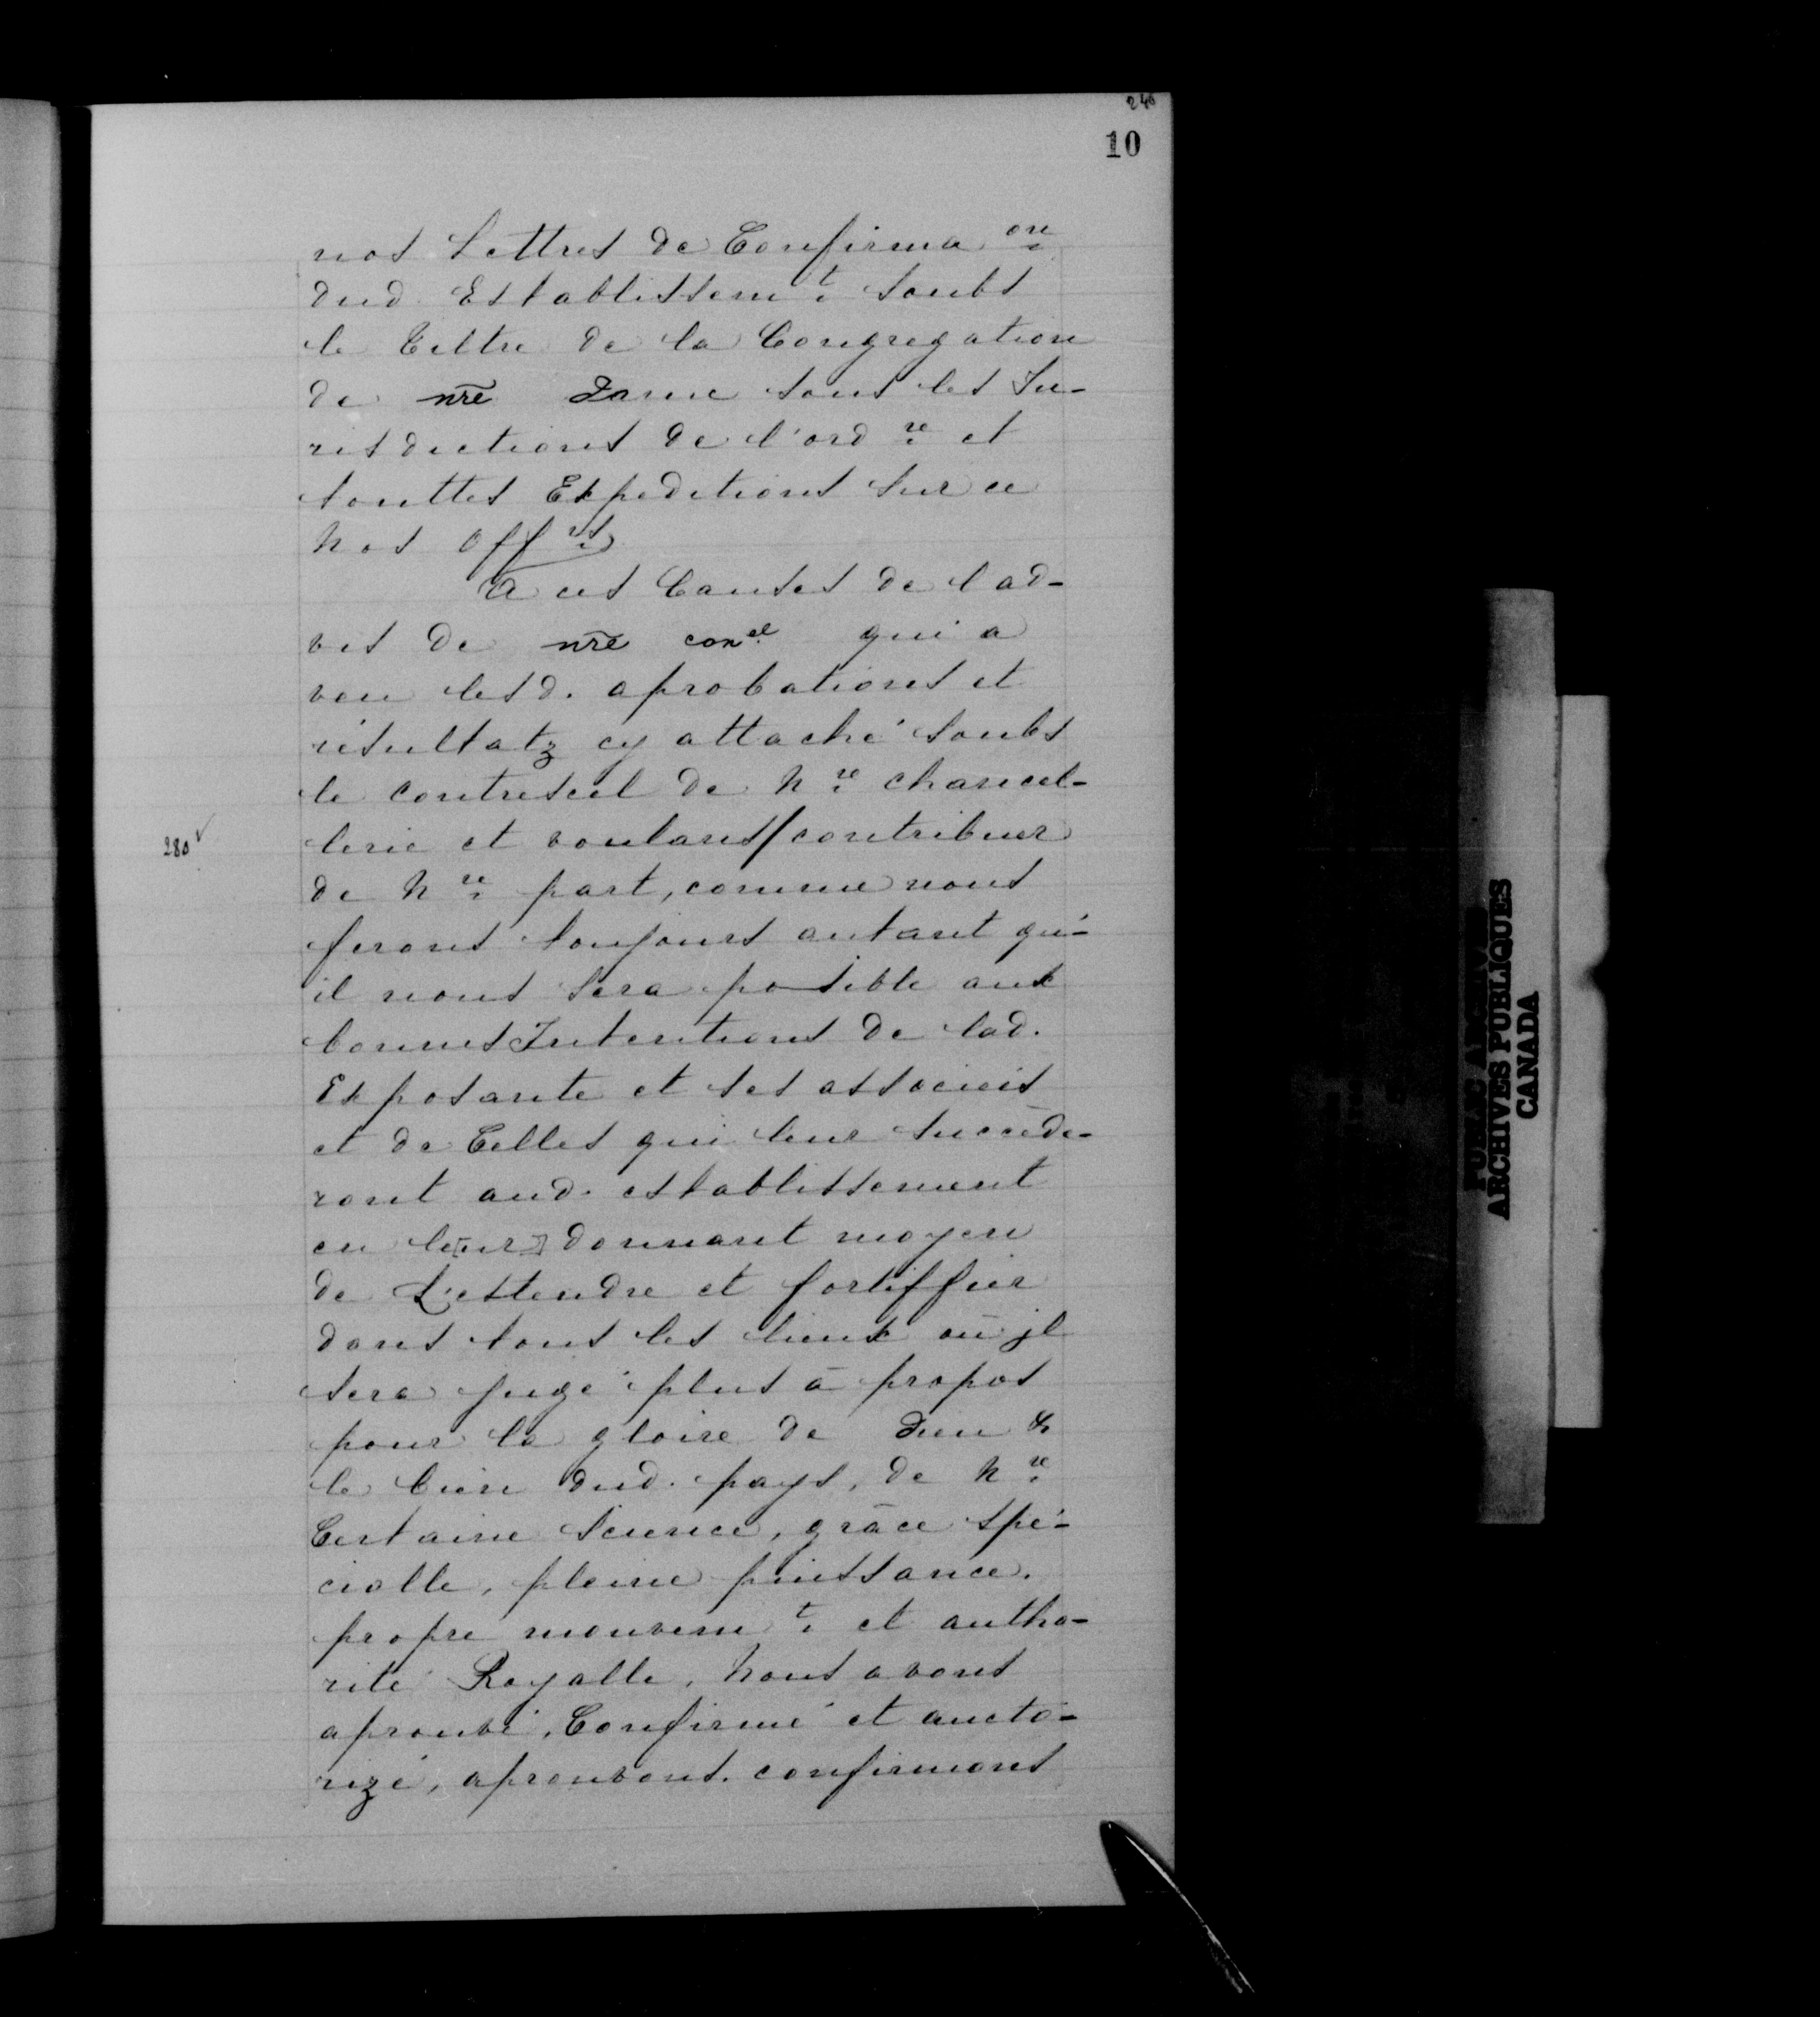 246
10
nos Lettres de Confirma on
dud. Establissem t. soubs
le Tiltre de la Congregation
de nr̃e Dame sous les Ju-
risdictions de l'ord re. et
touttes Expeditions sur ce
Nos Off rs.
A ces Causes de l'ad-
vis de nr̃e con el. qui a
veu lesd. aprobations et
résultatz cy attaché soubs
le contrescel de N re. chancel-
280 v
lerie et voulans/contribuer
de N re. part, comme nous
ferons toujours autant qu'-
il nous sera possible aux
bonnes Intentions de lad.
Exposante et ses associeés
et de Celles qui leur succéde-
ront aud. establissement
en le[ur] donnant moyen
de L'estendre et fortiffier
dans tous les lieux où jl
sera jugé plus à propos
pour la gloire de Dieu &
le bien dud. pays, de N re.
Certaine science, grâce spé-
cialle, pleine puissance,
propre mouvem t. et autho-
rité Royalle, Nous avons
aprouvé, Confirmé et aucto-
rizé, aprouvons, confirmons
PUBLIC ARCHIVES
ARCHIVES PUBLIQUES
CANADA